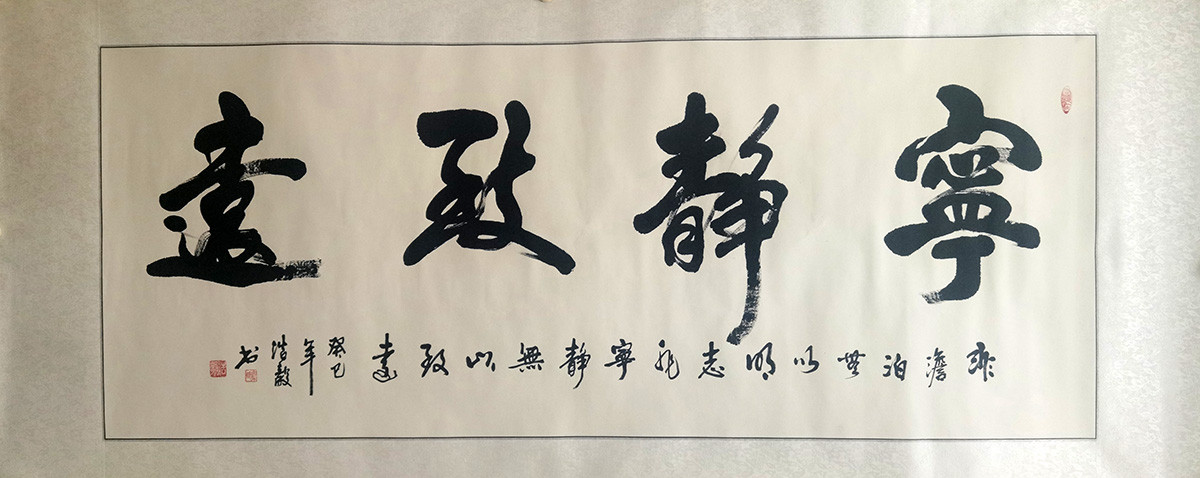 寧靜致遠
非澹泊無以明志非寧靜無以致遠
癸巳
年
浩毅
书